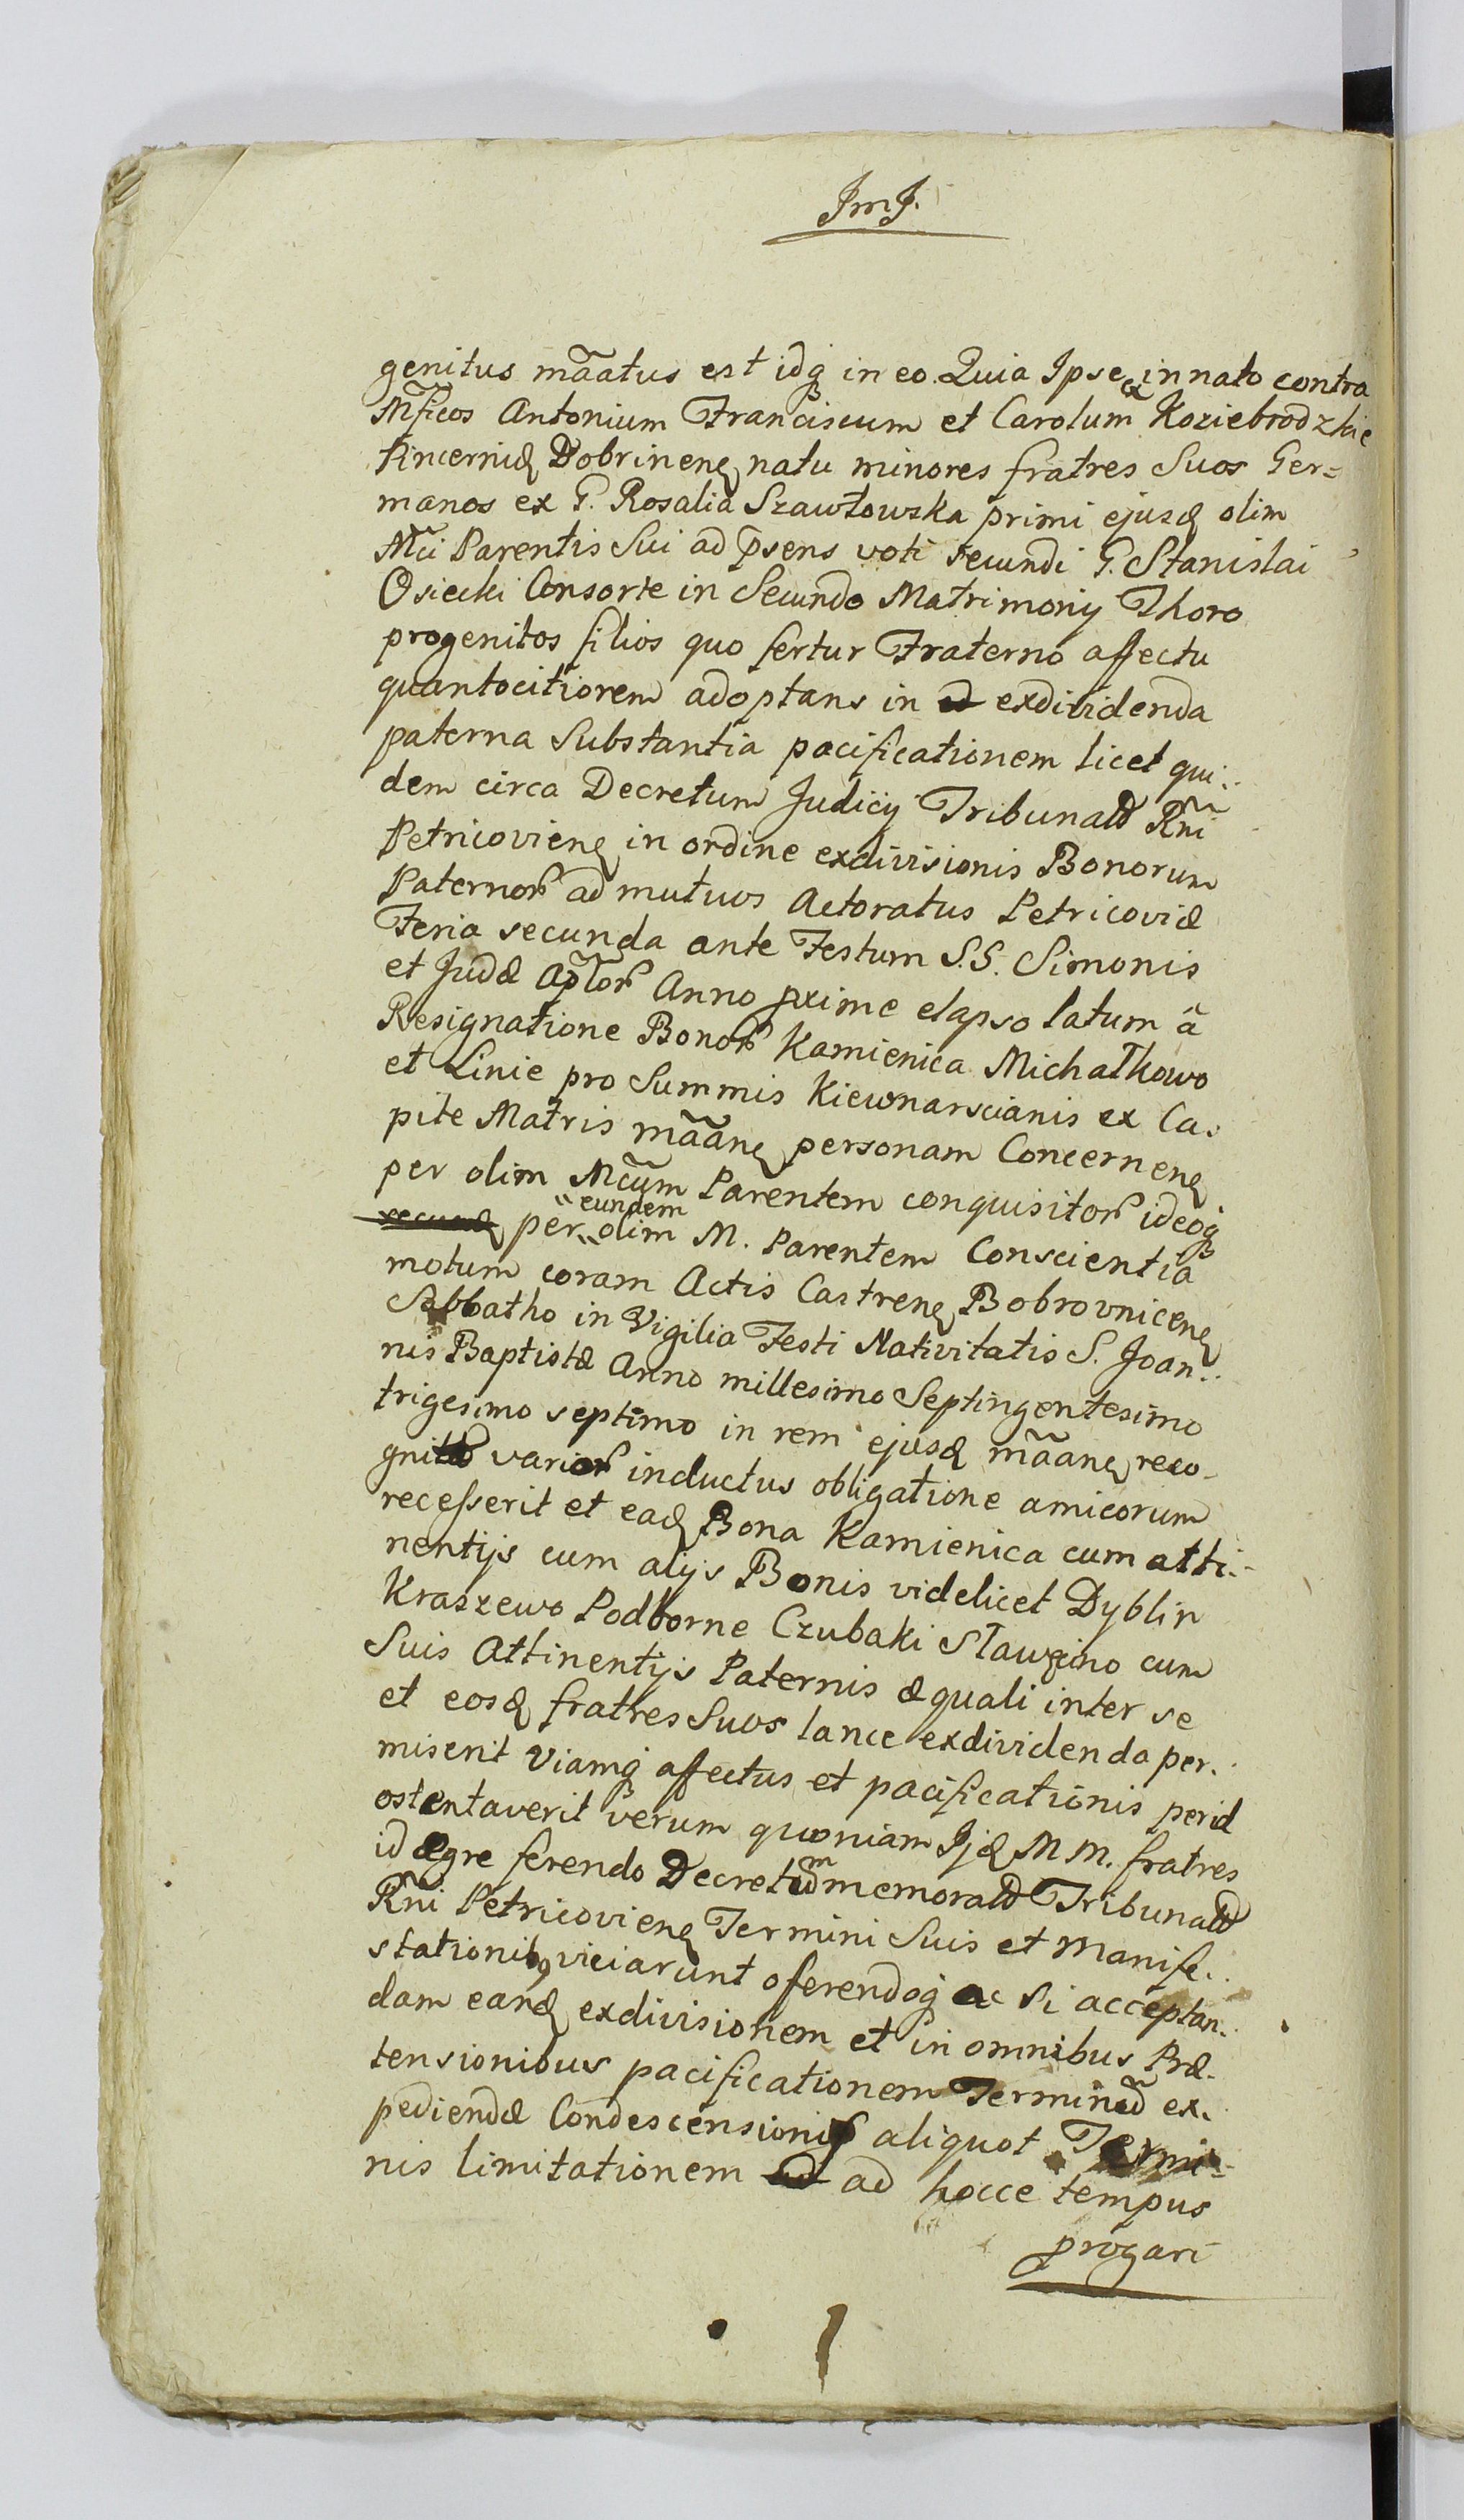 J.m.J.
genitus mãatus est idq; in eo. Quia Ipse ex innato contra
Mficos Antonium Franciscum et Carolum Koziebrodzkie
Pincernid Dobrinen natu minores fratres Suos Ger=
manos ex G. Rosalia Szawłowska primi ejusd olim
Mci Parentis Sui ad p̃sens voti secundi G. Stanislai
Osiecki Consorte in Secundo Matrimonij Thoro
progenitos filios quo fertur Fraterno affectu
quantocitiorem adoptans in exdividenda
paterna Substantia pacificationem licet qui..
dem circa Decretum Judicij Tribunal Rñi
Petricovien in ordine exdivisionis Bonorum
Paternor ad mutuos Actoratus Petricoviæ
Feria secunda ante Festum S.S. Simonis
et Judæ Aplor Anno pxime elapso latum â
Resignatione Bonor Kamienica Michałkowo
et Linie pro Summis Kiewnarscianis ex Ca.
pite Matris mãan personam Concernen
per olim Mcum Parentem conquisitor ideoq;
per eundem olim M. Parentem Conscientia
motum coram Actis Castren Bobrovnicen
Sabbatho in Vigilia Festi Nativitatis S. Joan..
nis Baptistæ Anno millesimo Septingentesimo
trigesimo septimo in rem ejusd mãan reco-
gnita varior inductus obligatione amicorum
recesserit et ead Bona Kamienica cum atti.-
nentijs cum alijs Bonis videlicet Dyblin
Kraszewo Podborne Czubaki Sławęcino cum
Suis Attinentijs Paternis æquali inter se
et eosd fratres Suos lance exdividenda per..
miserit viamq; affectus et pacificationis per id
ostentaverit verum quoniam Ijd M M. fratres
id ægre ferendo Decretum memorat Tribunal
Rñi Petricovien Termini Suis et Manife..
stationib; viciarunt oferendoq; ac si acceptan..
dam eand exdivisionem et in omnibus Præ.
tensionibus pacificationem Terminũ ex.
pediendæ Condescensionis aliquot Termi-
nis limitationem ad hocce tempus
progari